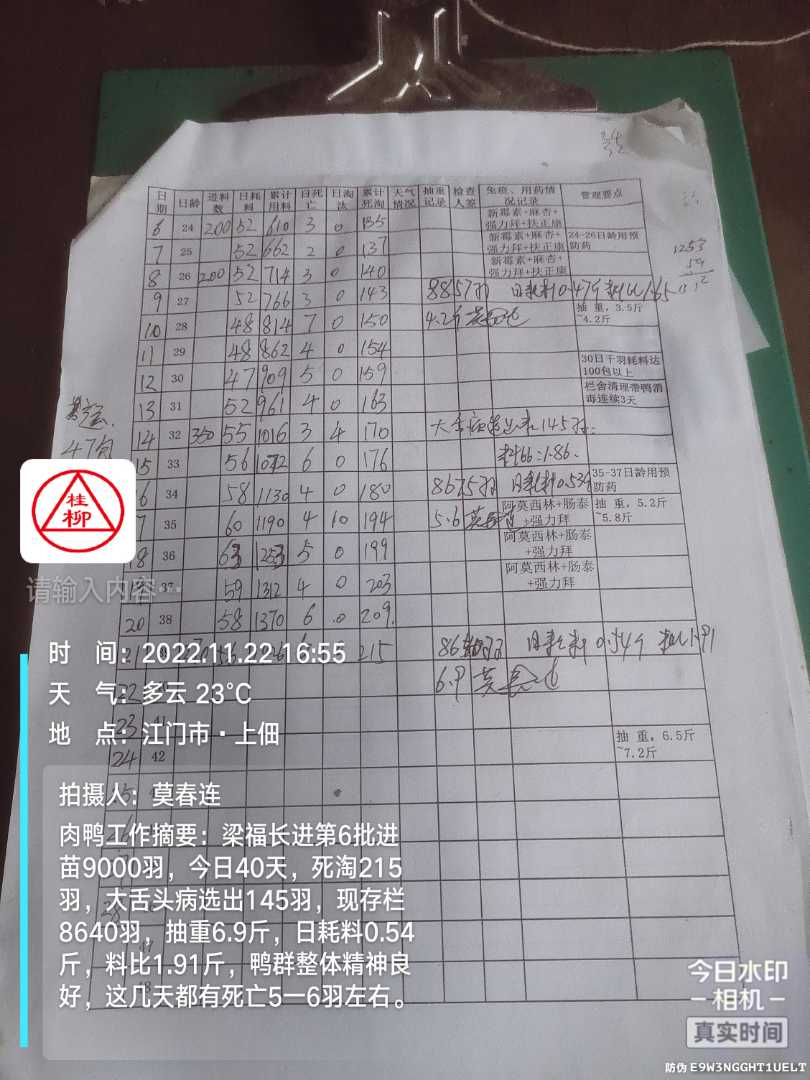 日期 日龄 进料数 日耗料 累计用料 日死亡 日淘汰 累计死淘 天气情况 抽重记录 检查人签 免疫、用药情况记录 管理要点
6 24 200 52 610 3 0 135 新霉素+麻杏+强力拜+扶正康
7 25 52 662 2 0 137 新霉素+麻杏+强力拜+扶正康 24-26日龄用预防药
8 26 200 52 714 3 0 140 新霉素+麻杏+强力拜+扶正康
9 27 52 766 3 0 143 8857羽 日耗料0.47斤 料比1.65
10 28 48 814 7 0 150 4.2斤 抽 重，3.5斤~4.2斤
11 29 48 862 4 0 154
12 30 47 909 5 0 159 30日千羽耗料达100包以上
13 31 52 961 4 0 163 栏舍清理带鸭消毒连续3天
14 32 350 55 1016 3 4 170 大舌病选出来145羽.
15 33 56 1072 6 0 176 料比:1.86.
16 34 58 1130 4 0 180 8675羽 日耗料0.53斤 35-37日龄用预防药
17 35 60 1190 4 10 194 5.6 阿莫西林+肠泰+强力拜 抽 重，5.2斤~5.8斤
18 36 63 1253 5 0 199 阿莫西林+肠泰+强力拜
19 37 59 1312 4 0 203 阿莫西林+肠泰+强力拜
20 38 58 1370 6 0 209.
215 日耗料 0.54斤 料比1.91
6.9 莫春连
23 41
24 42 抽 重，6.5斤~7.2斤
1253
59
47包
桂柳
请输入内容…
时 间：2022.11.22 16:55
天 气：多云 23℃
地 点：江门市·上佃
拍摄人：莫春连
肉鸭工作摘要：梁福长进第6批进
苗9000羽，今日40天，死淘215
羽，大舌头病选出145羽，现存栏
8640羽，抽重6.9斤，日耗料0.54
斤，料比1.91斤，鸭群整体精神良
好，这几天都有死亡5一6羽左右。
今日水印
相机
真实时间
防伪 E9W3NGGHT1UELT